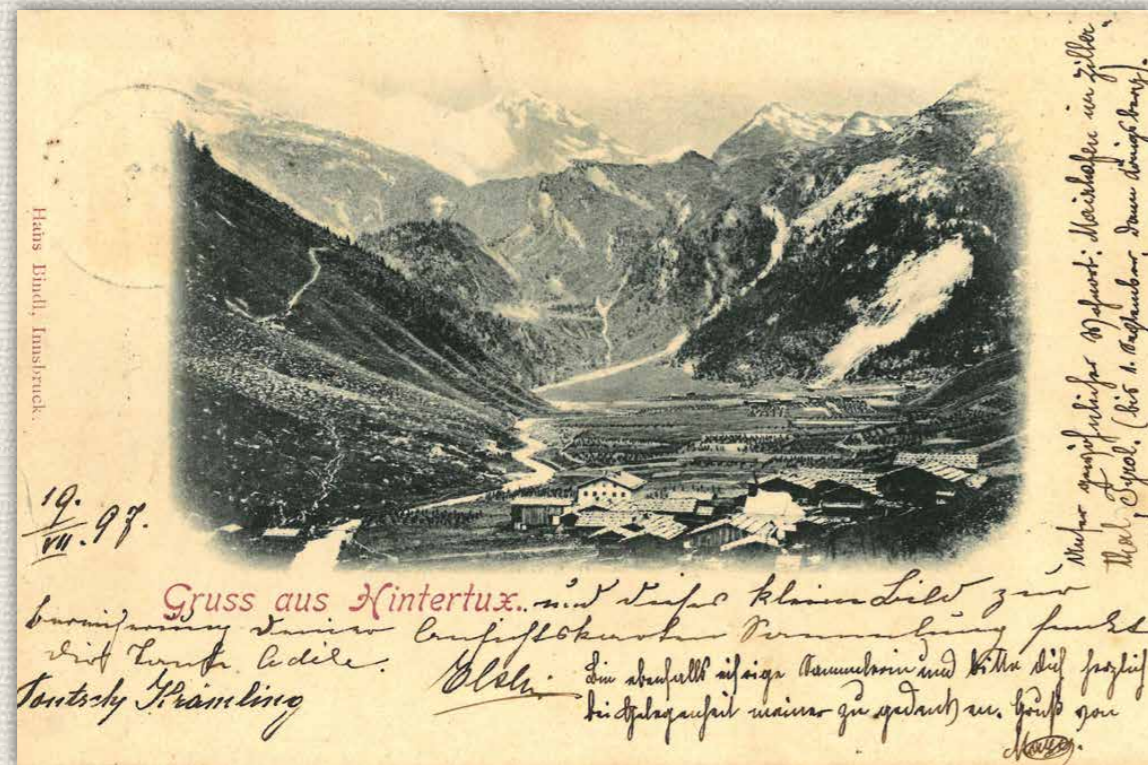 Hans Bindl, Innsbruck.
19./VII. 97.
Gruss aus Hintertux. und dieses kleine Bild zur
bereicherung deiner Ansichtskarten Sammlung sendet
dir Tante Adele.
Krämling
Elsh
Bin ebenfalls eifrige Sammlerin und bitte dich herzlich
bei Gelegenheit meiner zu gedenken. Gruß von
Unser Wohnort: Mairhofen im Ziller
thal Tyrol. (bis 1. September, dann Königsberg).